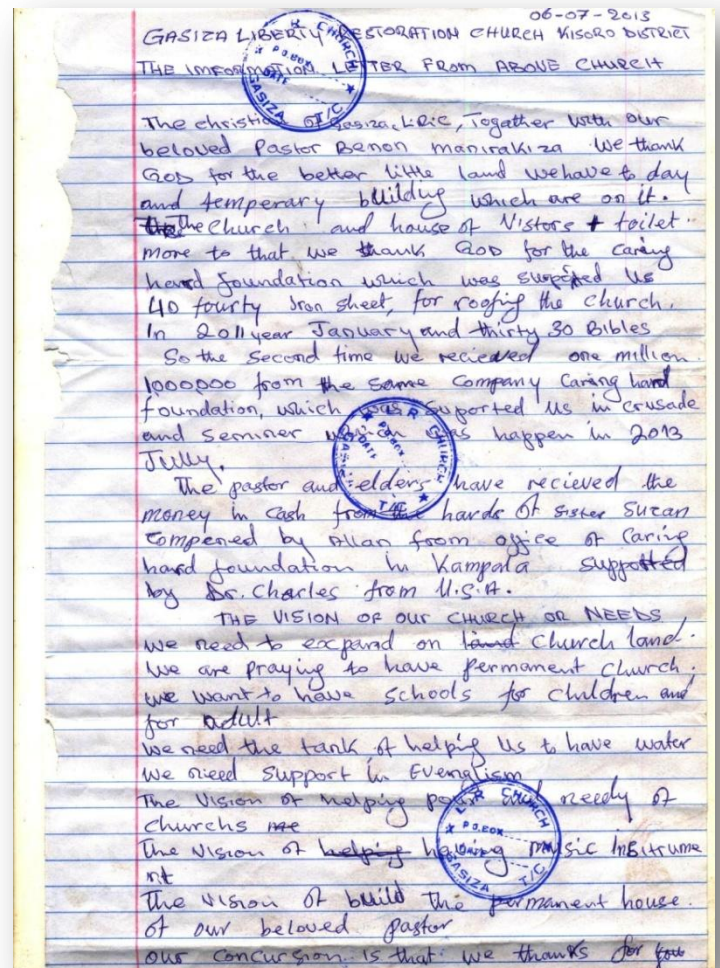 06-07-2013
GASIZA LIBERTY RESTORATION CHURCH KISORO DISTRICT
THE IMFORMATION LETTER FROM ABOVE CHURCH
The christian of Gasiza, LRC, Together with our
beloved Pastor Benon manirakiza We thank
GOD for the better little land we have to day
and temperary building which are on it.
The church and house of Vistors + toilet.
more to that we thank GOD for the caring
hard foundation which was suported us
40 fourty Iron sheet, for roofing the church.
In 2011 year January and thirty 30 Bibles
So the second time we recieved one million
1000,000 from the same company caring hard
foundation, which was suported us in crusade
and seminer which was happen in 2013
Jully,
The pastor and elders have recieved the
money in cash from the hards of sister Suzan
compened by Allan from office of caring
hard foundation in Kampala supported
by Dr. Charles from U.S.A.
THE VISION OF OUR CHURCH OR NEEDS
we need to expand on land church land.
We are praying to have permament church.
we want to have schools for children and
for adult
we need the tank of helping us to have water
we need support in Evengalism
The vision of helping poor and needy of
churchs
The vision of helping having music inbitrume
nt
The vision of build the permament house.
of our beloved pastor
our concursion is that we thanks for you
L R CHURCH
P.O.BOX
DATE
GASIZA T/C
L R CHURCH
P.O.BOX
DATE
GASIZA T/C
L R CHURCH
P.O.BOX
DATE
GASIZA T/C